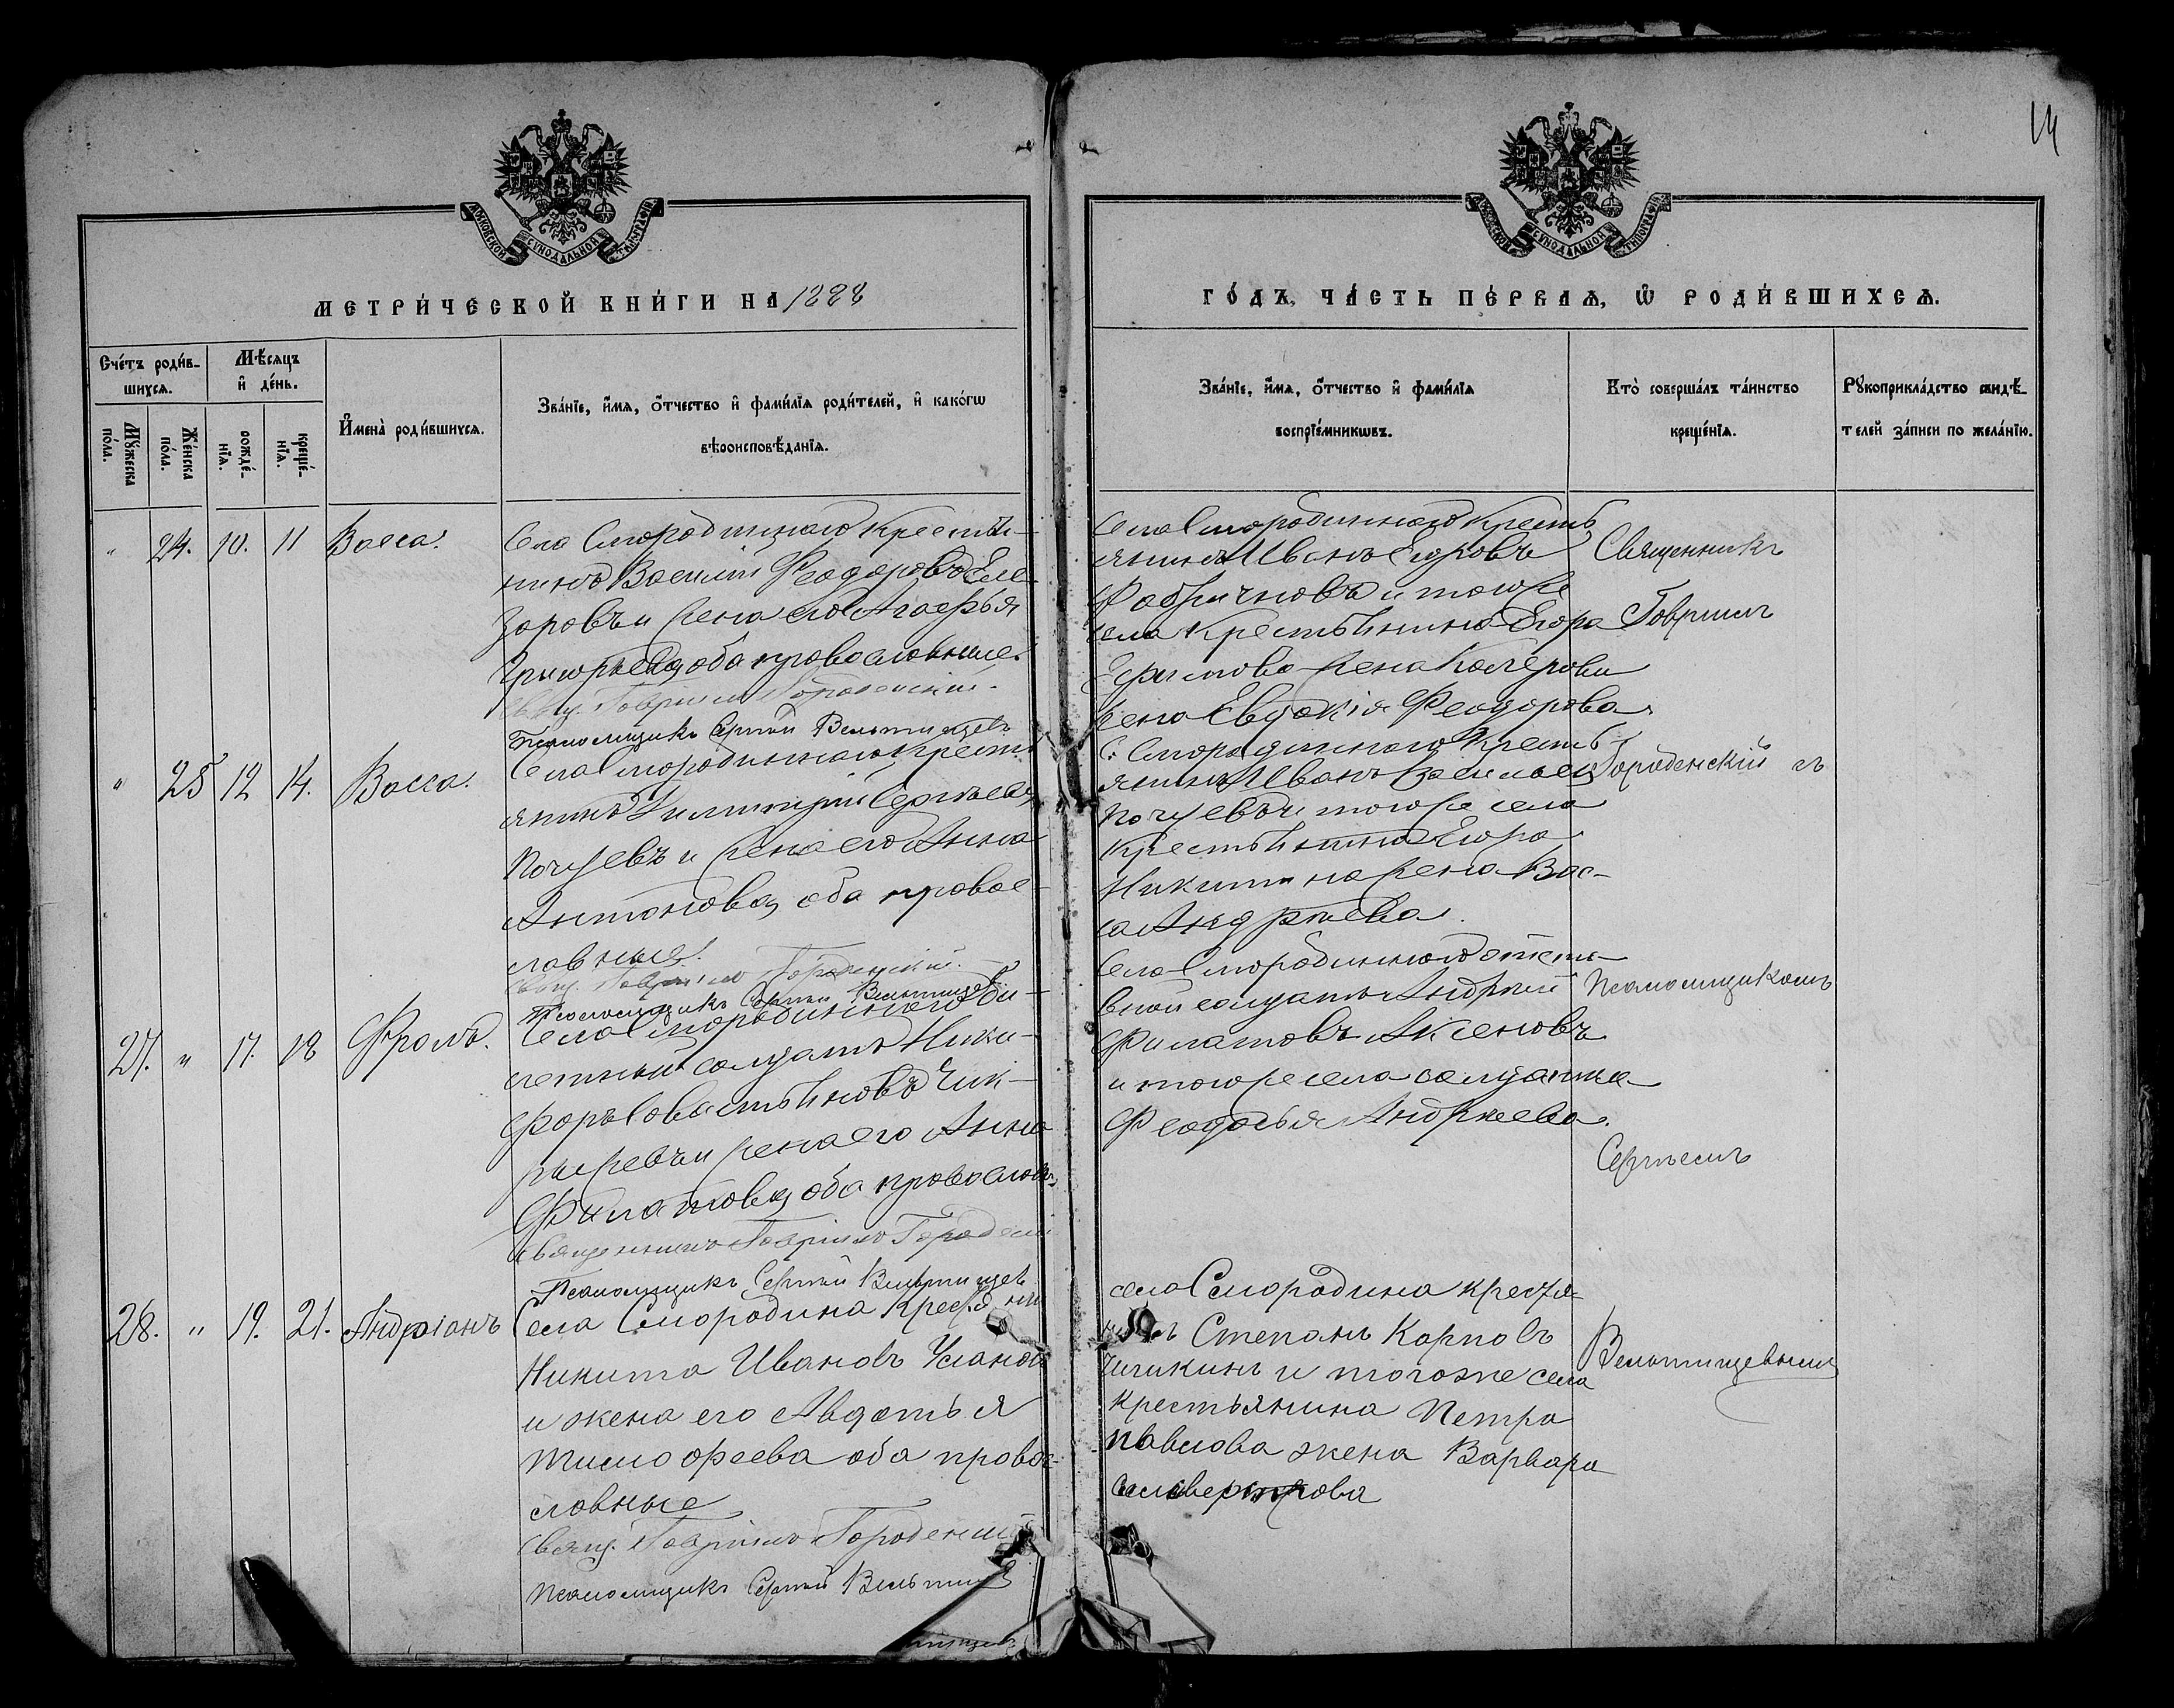 14
МОСКОВСКОЙ СѴНОДАЛЬНОЙ ТИПОГРАФІИ
МОСКОВСКОЙ СѴНОДАЛЬНОЙ ТИПОГРАФІИ
МЕТРИ́ЧЕСКОЙ КНИ́ГИ НА 1888
ГО́ДЪ, ЧА́СТЬ ПЕ́РВАѦ, Ѿ РОДИ́ВШИХСѦ.
Счéтъ роди́в-
шихсѧ.
Мѣ́сѧцъ
и҆ дéнь.
Мꙋ́жеска
по́ла.
Же́нска
по́ла.
рожде́-
нїѧ.
креще́-
нїѧ.
И҆мена̀ роди́вшихсѧ.
Зва́нїе, и҆́мѧ, ѻ҆́тчество и҆ фами́лїѧ роди́телей, и҆ како́гѡ
вѣроисповѣ́данїѧ.
Зва́нїе, и҆́мѧ, ѻ҆́тчество и҆ фами́лїѧ
воспрїе́мникѡвъ.
Кто̀ соверша́лъ та́инство
креще́нїѧ.
Рꙋкоприкла́дство свидѣ́-
телей за́писи по жела́нїю.
" 24. 10. 11 Васса.
Села Смородиннаго крестья-
нинъ Василій Феодоровъ Еле-
заровъ и жена его Агафья
Григорьева, оба православные.
Свящ. Гавріилъ Городенскій.
Псаломщикъ Сергѣй Вельтищевъ
Села Смородиннаго кресть-
янинъ Иванъ Егоровъ
Фабричновъ и тогоже
села крестьянина Егора
жена Евдокія Феодорова.
Священникъ
Гавріилъ
" 25 12 14. Васса.
Села Смородиннаго кресть-
янинъ Димитрій Сергѣевъ
Почуевъ и жена его Анна
Антонова, оба правос-
лавные.
Свящ. Гавріилъ Городенскій.
Псаломщикъ Сергѣй Вельтищевъ
С. Смородиннаго кресть-
янинъ Иванъ Васильевъ
Почуевъ и тогоже села
крестьянина Егора
Никитина жена Вас-
са Андреева.
Городенскій съ
27. " 17. 18 Фролъ.
Села Смородиннаго би-
летный солдатъ Ники-
форъ Савастьяновъ Чик-
рыжевъ и жена его Анна
Филатова, оба православн.
Священникъ Гавріилъ Городенскій
Псаломщикъ Сергѣй Вельтищев
Села Смородиннаго отста-
вной солдатъ Андрей
Филатовъ Аксеновъ
и тогоже села солдатка
Феодосья Андреева.
Псаломщикомъ
Сергѣемъ
28. " 19. 21. Андріанъ
Села Смородина Крестянин
Никита Ивановъ Усановъ
и жена его Авдотья
Тимофеева оба правос-
лавные
Свящ. Гавріилъ Городенскій
Псаломщикъ Сергѣй Вельтищев
села Смородина крестья-
нинъ Степанъ Карповъ
Чичикинъ и тогоже села
крестьянина Петра
Павлова жена Варвара
Вельтищевымъ